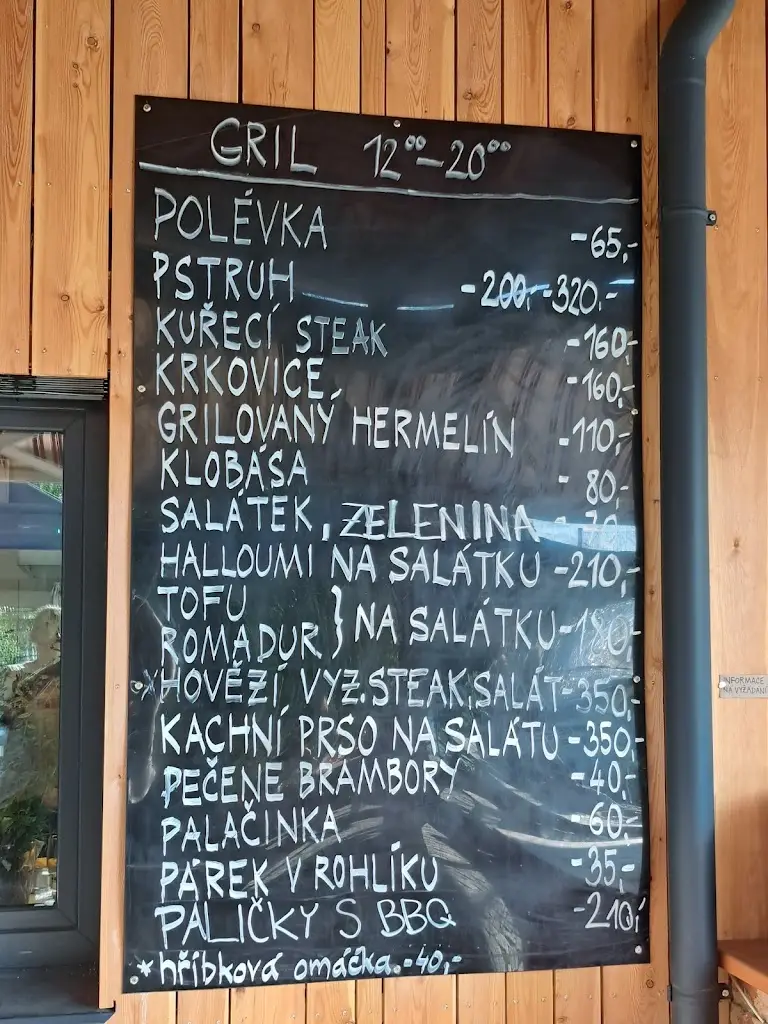 GRIL 12⁰⁰-20⁰⁰
POLÉVKA -65,-
PSTRUH -200,- -320.-
KUŘECÍ STEAK -160,-
KRKOVICE -160,-
GRILOVANÝ HERMELÍN -110,-
KLOBÁSA - 80,-
SALÁTEK, ZELENINA - 70
HALLOUMI NA SALÁTKU -210,-
TOFU
ROMADUR } NA SALÁTKU -180,-
*HOVĚZÍ VYZ. STEAK, SALÁT -350,-
KACHNÍ PRSO NA SALÁTU -350,-
PEČENE BRAMBORY -40,-
PALAČINKA -60,-
PÁREK V ROHLÍKU -35,-
PALIČKY S BBQ -210,-
*hříbková omáčka. -40,-
INFORMACE
NA VYŽÁDÁNÍ